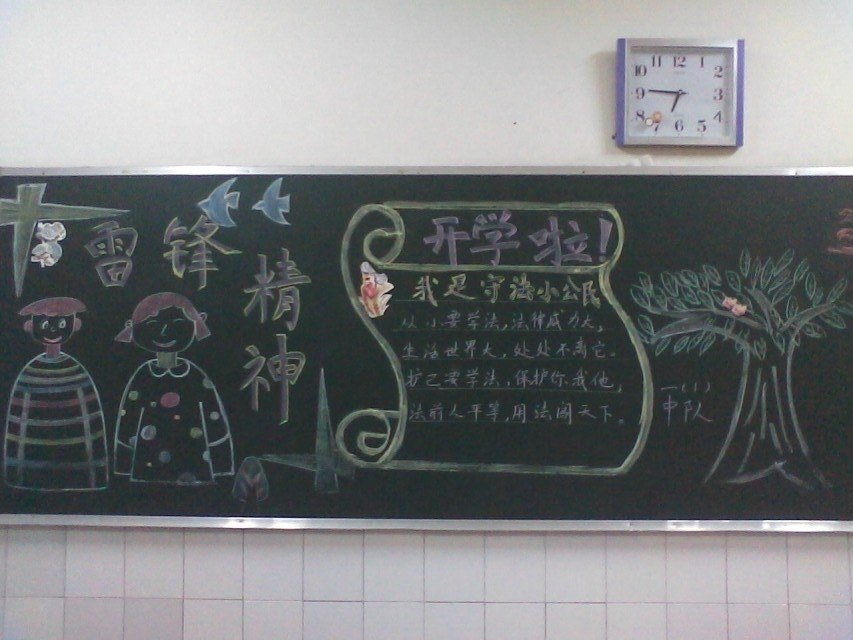 雷锋
精神
开学啦!
我是守法小公民
从小要学法,法律威力大,
生活世界大,处处不离它。
护己要学法,保护你我他,
法前人平等,用法闯天下。
一(1)
中队
11 12 1
10 2
9 3
8 4
7 6 5